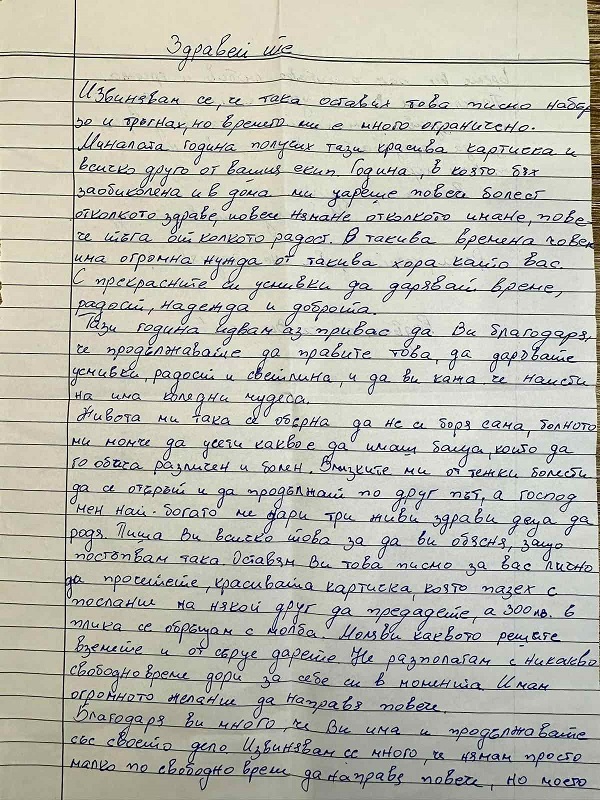 Здравейте
Извинявам се, че така оставих това писмо набър
зо и тръгнах, но времето ми е много ограничено.
Миналата година получих тази красива картичка и
всичко друго от вашия екип. Година, в която бях
заобиколена и в дома ми цареше повече болест
отколкото здраве, повече нямане отколкото имане, пове-
че тъга отколкото радост. В такива времена човек
има огромна нужда от такива хора като вас.
С прекрасните си усмивки да даряват време,
радост, надежда и доброта.
Тази година идвам аз при вас да Ви благодаря,
че продължавате да правите това, да дарявате
усмивки, радост и светлина, и да ви кажа, че наисти
на има коледни чудеса.
Живота ми така се обърна да не се боря сама, болното
ми момче да усети какво е да имаш баща, който да
го обича различен и болен. Близките ми от тежки болести
да се открият и да продължат по друг път, а господ
мен най-богато ме дари три живи здрави деца да
родя. Пиша Ви всичко това за да ви обясня, защо
постъпвам така. Оставям Ви това писмо за вас лично
да прочетете, красивата картичка, която пазех с
послание на някой друг да предадете, а 300 лв. в
плика се обръщам с молба. Моля ви каквото решите
вземете и от сърце дарете. Не разполагам с никакво
свободно време дори за себе си в момента. Имам
огромното желание да направя повече.
Благодаря ви много, че Ви има и продължавате
със своето дело. Извинявам се много, че нямам просто
малко по свободно време да направя повече, но моето